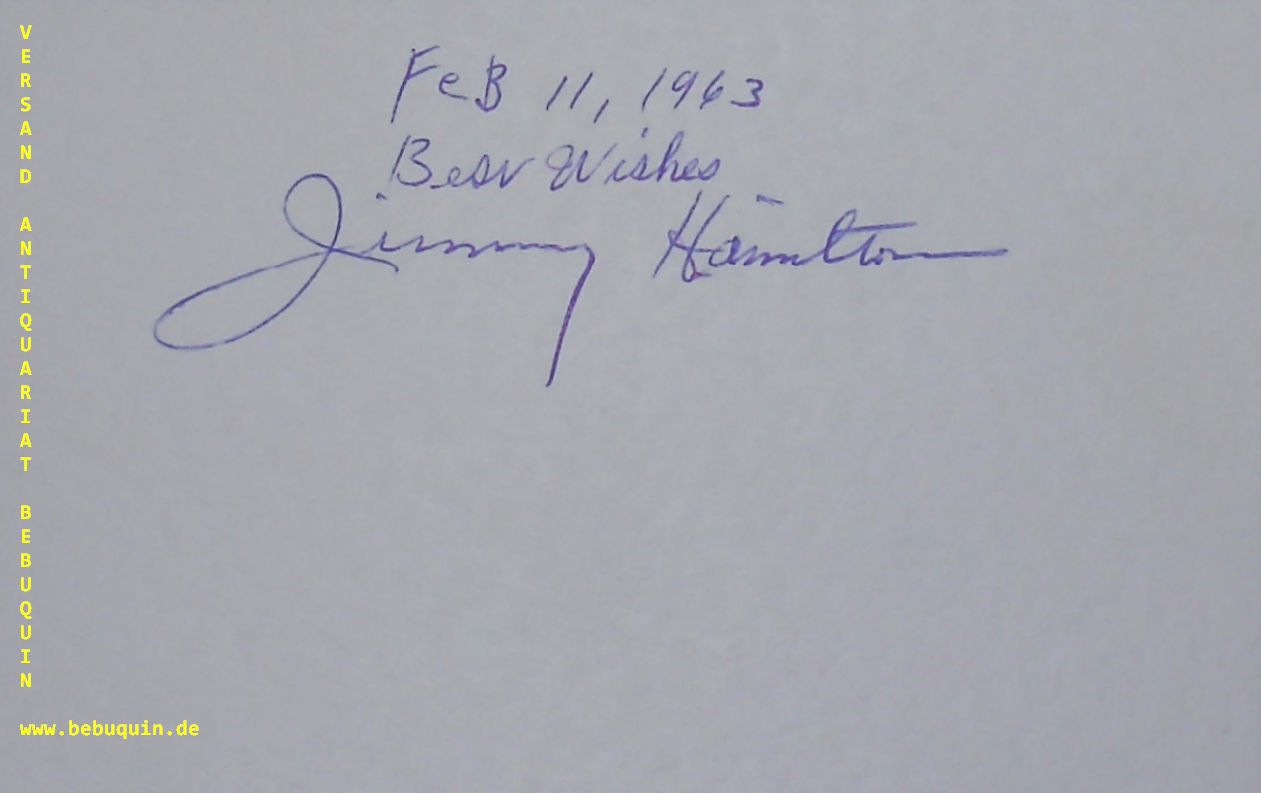 FeB 11, 1963
Best Wishes
Jimmy Hamilton
VERSAND ANTIQUARIAT BEBUQUIN
www.bebuquin.de